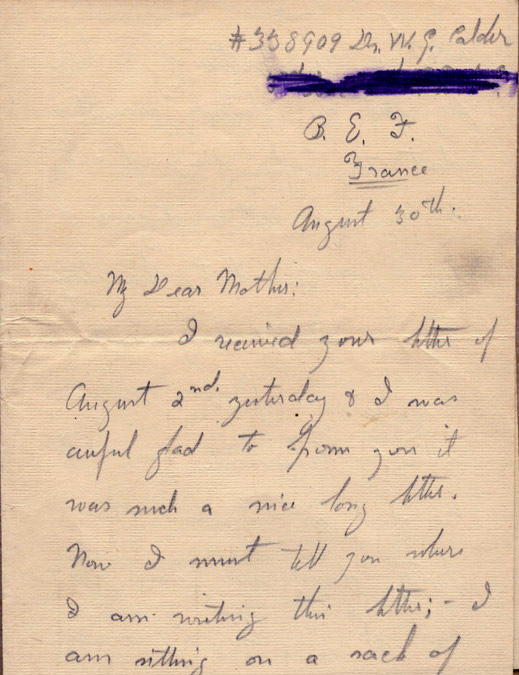 #358909 Dr. W. G. Calder
B. E. F.
France
August 30th.
My Dear Mother:
I received your letter of
August 2nd. yesterday & I was
awful glad to from you it
was such a nice long letter.
Now I must tell you where
I am writing this letter; - I
am sitting on a sack of